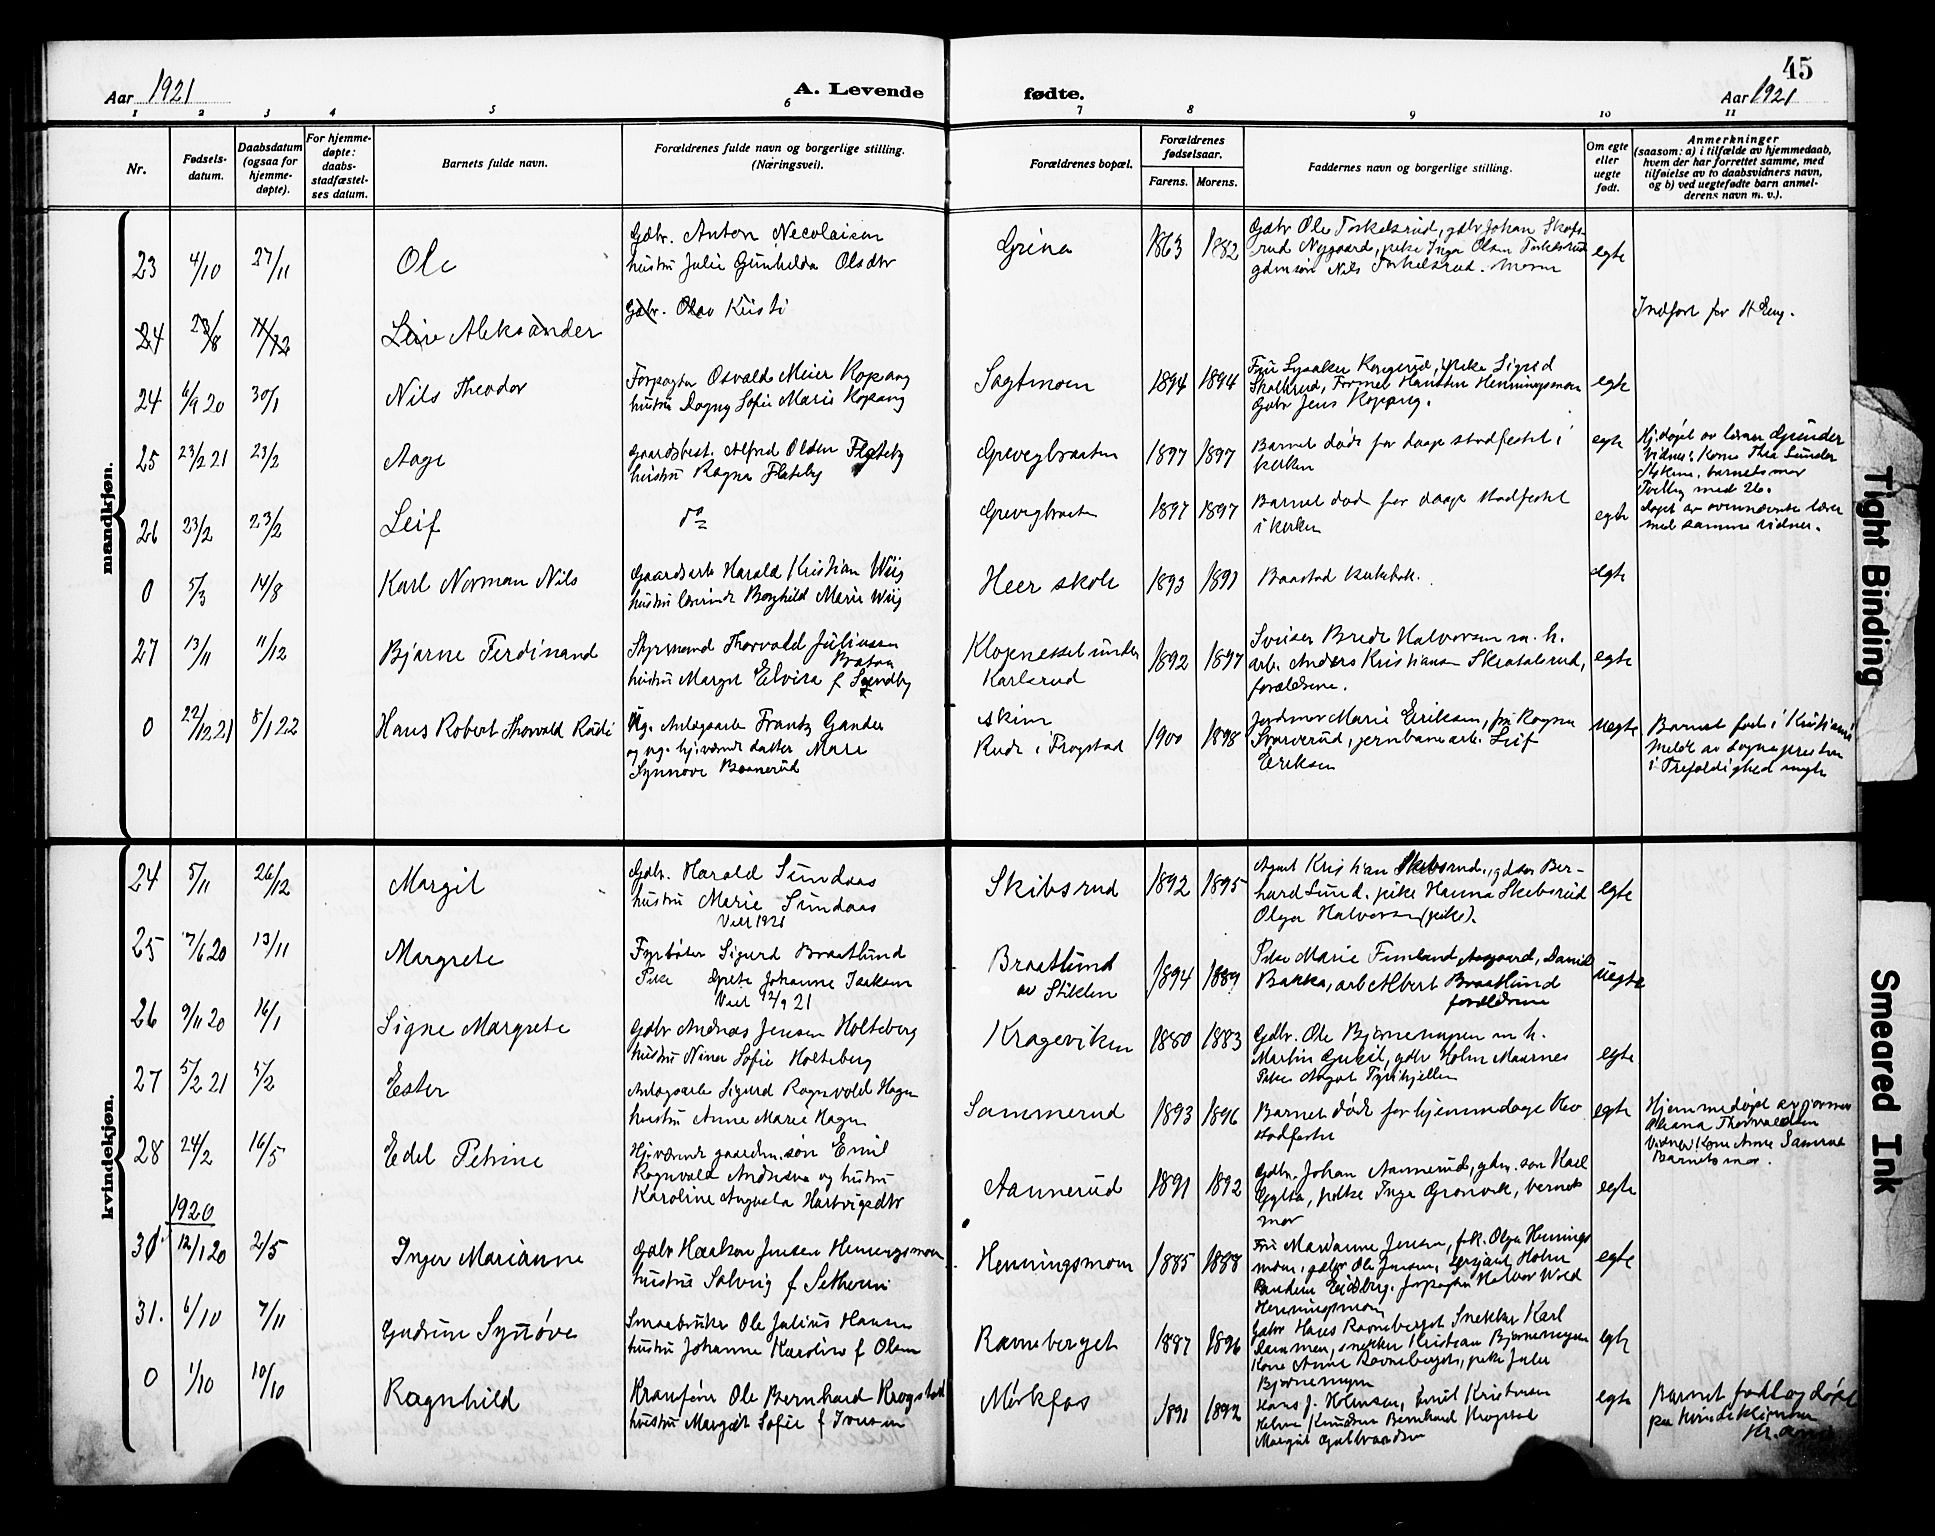 Aar 1921
A. Levende fødte.
45
Aar 1921
1 2 3 4 5 6 7 8 9 10 11
Nr.
Fødsels-
datum.
Daabsdatum
(ogsaa for
hjemme-
døpte).
For hjemme-
døpte:
daabs-
stadfæstel-
ses datum.
Barnets fulde navn.
Forældrenes fulde navn og borgerlige stilling.
(Næringsvei).
Forældrenes bopæl.
Forældrenes
fødselsaar.
Farens. Morens.
Faddernes navn og borgerlige stilling.
Om egte
eller
uegte
født.
Anmerkninger
(saasom: a) i tilfælde av hjemmedaab,
hvem der har forrettet samme, med
tilføielse av to daabsvidners navn,
og b) ved uegtefødte barn anmel-
derens navn m. v.).
mandkjøn.
23 4/10 27/11 Ole
Gdbr. Anton Necolaisen
hustru Julie Gunhilda Olsdtr
Grina 1863 1882
Gdbr Ole Torkelsrud, gdbr Johan
Nygaard, pike Inga Olsen Torkelsrud
gdmsøn Nils Torkelsrud. moren
egte
24 23/8 11/12 Leiv Aleksander
Gdbr. Olav Kristi
Indført for
24 6/9 20 30/1 Nils Theodor
Forpagter Osvald Meier Kopang
hustru Dagny Sofie Marie Kopang
Sagtmoen 1894 1894
Fru Lysaker Kongerud, pike Sigrid
Henningsmoen
Gdbr Jens
egte
25 23/2 21 23/2 Aage
Gaardsbest. Alfred Olsen Flateby
hustru Ragna Flateby
Grevegbraaten 1897 1897
Barnet døde før daaps stadfestet i
kirken
egte
Hj.døpt av lærer Grinder
vidner: Kone Thea Sunder
barnets mor
Tvilling med 26.
26 23/2 23/2 Leif
do
Grevegbraaten 1897 1897
Barnet død før daaps stadfestet
i kirken
egte
døpt av ovennævnte lærer
med samme vidner.
0 5/3 14/8 Karl Norman Nils
Gaardsarb Harald Kristian Wiig
hustru lærerinde Borghild Marie Wiig
Heer skole 1893 1891
Baastad kirkebok.
egte
27 13/11 11/12 Bjarne Ferdinand
Styrmand Thorvald Juliussen
Braten
hustru Margit Elvira f Sundby
under
Karlsrud
1892 1897
Sveiser Brede Halvorsen m. h.
arb. Anders Kristiansen
forældrene.
egte
0 22/12 21 8/1 22 Hans Robert Thorvald Rudi
Ug. Anlægsarb Frantz Gander
og ug. hj.værende datter Mari
Synnøve
Skim
Rude i Trøgstad
1900 1898
Jordmor Marie Eriksen, fru Ragna
jernbanearb. Leif
Eriksen
uegte
Barnet født i Kristiania
Meldt av sognepresten
i Trefoldighed
kvindekjøn.
24 5/11 26/12 Margit
Gdbr. Harald Sundaas
hustru Marie Sundaas
Viet 1921
Skibsrud 1892 1895
Agent Kristian Skibsrud, gdbr Ber-
hard Lund, pike Hanna Skibsrud
Olga Halvorsen (pike).
egte
25 7/6 20 13/11 Margrete
Fyrbøter Sigurd Braatlund
Pike Johanne Isaksen
Viet 12/9 21
Braatlund
av Stikklen
1894 1889
Pike Marie Funland, Daniel
Bakka, arb Albert Braatlund
forældrene
uegte
26 9/11 20 16/1 Signe Margrete
Gdbr Andreas Jensen Holteberg
hustru Nina Sofie Holteberg
Krageviken 1880 1883
Gdbr. Ole Bjørnemyren m h.
Martin gdbr Holm
Pike Aagot Tyrihjellen
egte
27 5/2 21 5/2 Ester
Anlægsarb Sigurd Ragnvold Hagen
hustru Anne Marie Hagen
Sammerud 1893 1896
Barnet døde før hjemmedaape blev
stadfestet
egte
Hjemmedøpt av jormor
Thorvaldsen
Vidner: Kone Anne
Barnets mor.
28 24/2 16/5 Edel Petrine
Hj.værende gaardm. søn Emil
Ragnvald Andresen og hustru
Karoline Augusta Hartvigsdtr
Aannerud 1891 1892
Gdbr. Johan Aannerud, gdm. søn Karl
pike Inga barnets
mor
egte
1920
12/1 20 2/5 Inger Marianne
Gdbr Haakon Jensen Henningsmoen
hustru Solveig f
Henningsmoen 1885 1888
Fru Marianne Jensen, frk. Olga Hennings
moen, gdbr Ole Jensen, sersjant Holm
Eidsberg. forpagter Halvor Wold
Henningsmoen
egte
31. 6/10 7/11 Gudrun Synøve
Smaabruker Ole Julius Hansen
hustru Johanne Karoline f Olsen
Ravneberget 1887 1896
Gdbr Hans Ravneberget Snekker Karl
snekker Kristian Bjørnemyren
Kone Anne Ravneberget, pike Julie
Bjørnemyren
egte
0 1/10 10/10 Ragnhild
Kranfører Ole Bernhard Krogstad
hustru Margit Sofie f Iversen
Mørkfos 1891 1892
Hans J. Holmsen, Emil Kristiansen
Helene Knudsen Bernhard Krogstad
Margit
egte
Barnet født og døpt
paa kvindeklinikken
Tight Binding
Smeared Ink